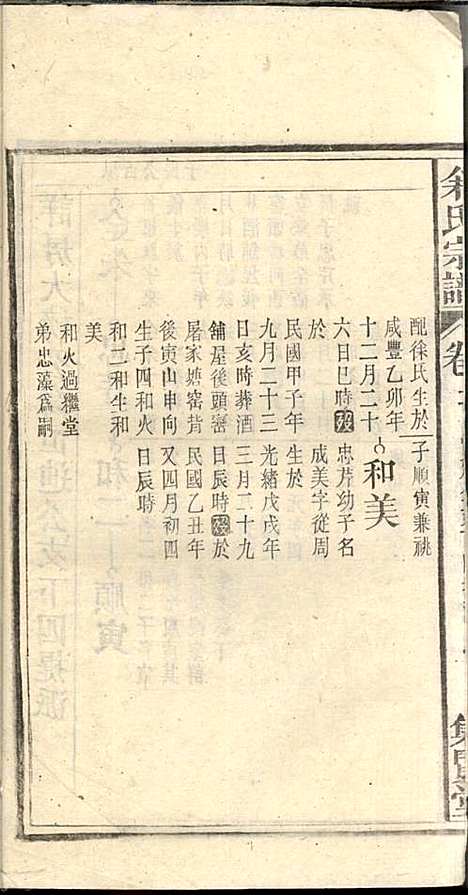 氏宗譜
卷
集賢堂
配徐氏生於
咸豐乙卯年
十二月二十
六日巳時歿
於
民國甲子年
九月二十三
日亥時葬酒
舖屋後頭窰
屠家塘窑背
後寅山申向
生子四和火
和三和生和
美
和火過繼堂
弟忠藻爲嗣
子順寅兼祧
和美
忠芹幼子名
成美字從周
生於
光緒戊戌年
三月二十九
日辰時歿於
民國乙丑年
又四月初四
日辰時